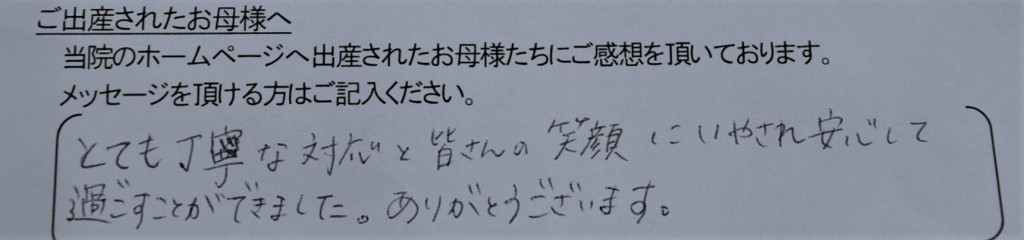 ご出産されたお母様へ
当院のホームページへ出産されたお母様たちにご感想を頂いております。
メッセージを頂ける方はご記入ください。
とても丁寧な対応と皆さんの笑顔にいやされ安心して
過ごすことができました。ありがとうございます。